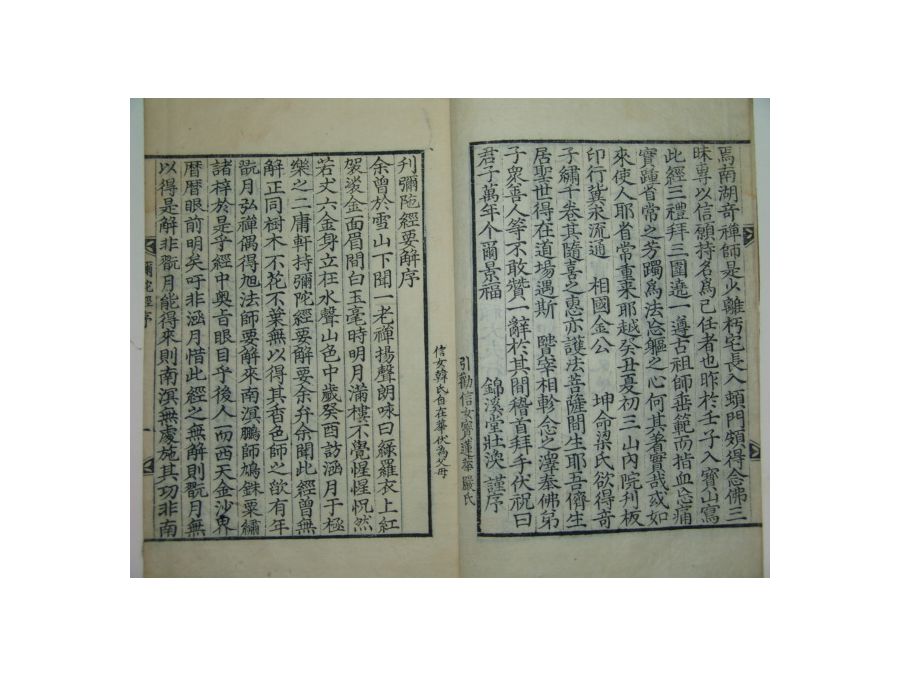 焉南湖奇禪師是少離朽宅長入頓門頗得念佛三
昧專以信願持名爲己任者也昨於壬子入寶山寫
此經三禮拜三圍遶一遵古祖師垂範而指血忘痛
實踵首常之芳躅爲法忘軀之心何其著實哉或如
來使人耶首常重来耶越癸丑夏初三山內院刋板
印行冀永流通 相國金公 坤命梁氏欲得奇
子繡千卷其隨喜之惠亦護法菩薩間生耶吾儕生
居聖世得在道場遇斯 賢宰相軫念之澤奉佛弟
子衆善人等不敢贊一辭於其間稽首拜手伏祝曰
君子萬年介爾景福 錦溪堂壯渙 謹序
引勸信女寶蓮華嚴氏
信女韓氏自在華伏為父母
刋彌陁經要解序
余曾於雪山下聞一老禪揚聲朗咏曰綠羅衣上紅
袈裟金面眉間白玉毫時明月滿樓不覺惺惺怳然
若丈六金身立在水聲山色中歲癸酉訪涵月于極
樂之二庸軒持彌陀經要解要余弁余聞此經曾無
解正同樹木不花不葉無以得其香色師之欲有年
翫月弘禪偶得旭法師要解來南溟鵬師鳩銖粟繡
諸梓於是乎經中奧旨眼目乎後人而西天金沙界
曆曆眼前明矣吁非涵月惜此經之無解則翫月無
以得是解非翫月能得來則南溟無處施其功非南
彌陀經序
一